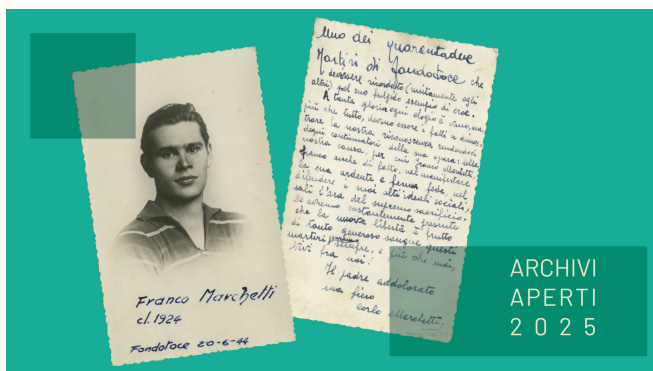 Franco Marchetti
cl. 1924
Fondotoce 20-6-44
Uno dei quarantadue
Martiri di Fondotoce che
devessere ricordato (unitamente agli
altri) pel suo fulgido esempio di eroe.
A tanta gloria ogni elogio è vano, ma
più che tutto, devono essere i fatti a dimos-
trare la nostra riconoscenza rendendoci
degni continuatori della sua opera: della
nostra causa, per cui Franco Marchetti,
franco anche di fatto, nel manifestare
la sua ardente e ferma fede, nel
difendere i suoi alti ideali sociali,
salì l'ara del supremo sacrificio.
Se avremo costantemente presente
che la nuova libertà è frutto
di tanto generoso sangue, questi
martiri sempre, e più che mai,
vivi fra noi!
Il padre addolorato
ma fiero
Carlo Marchetti
ARCHIVI
APERTI
2025